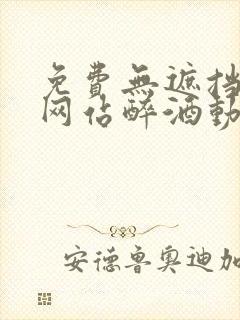 免費無遮挡
网佔醉酒動
安德鲁奥迪加